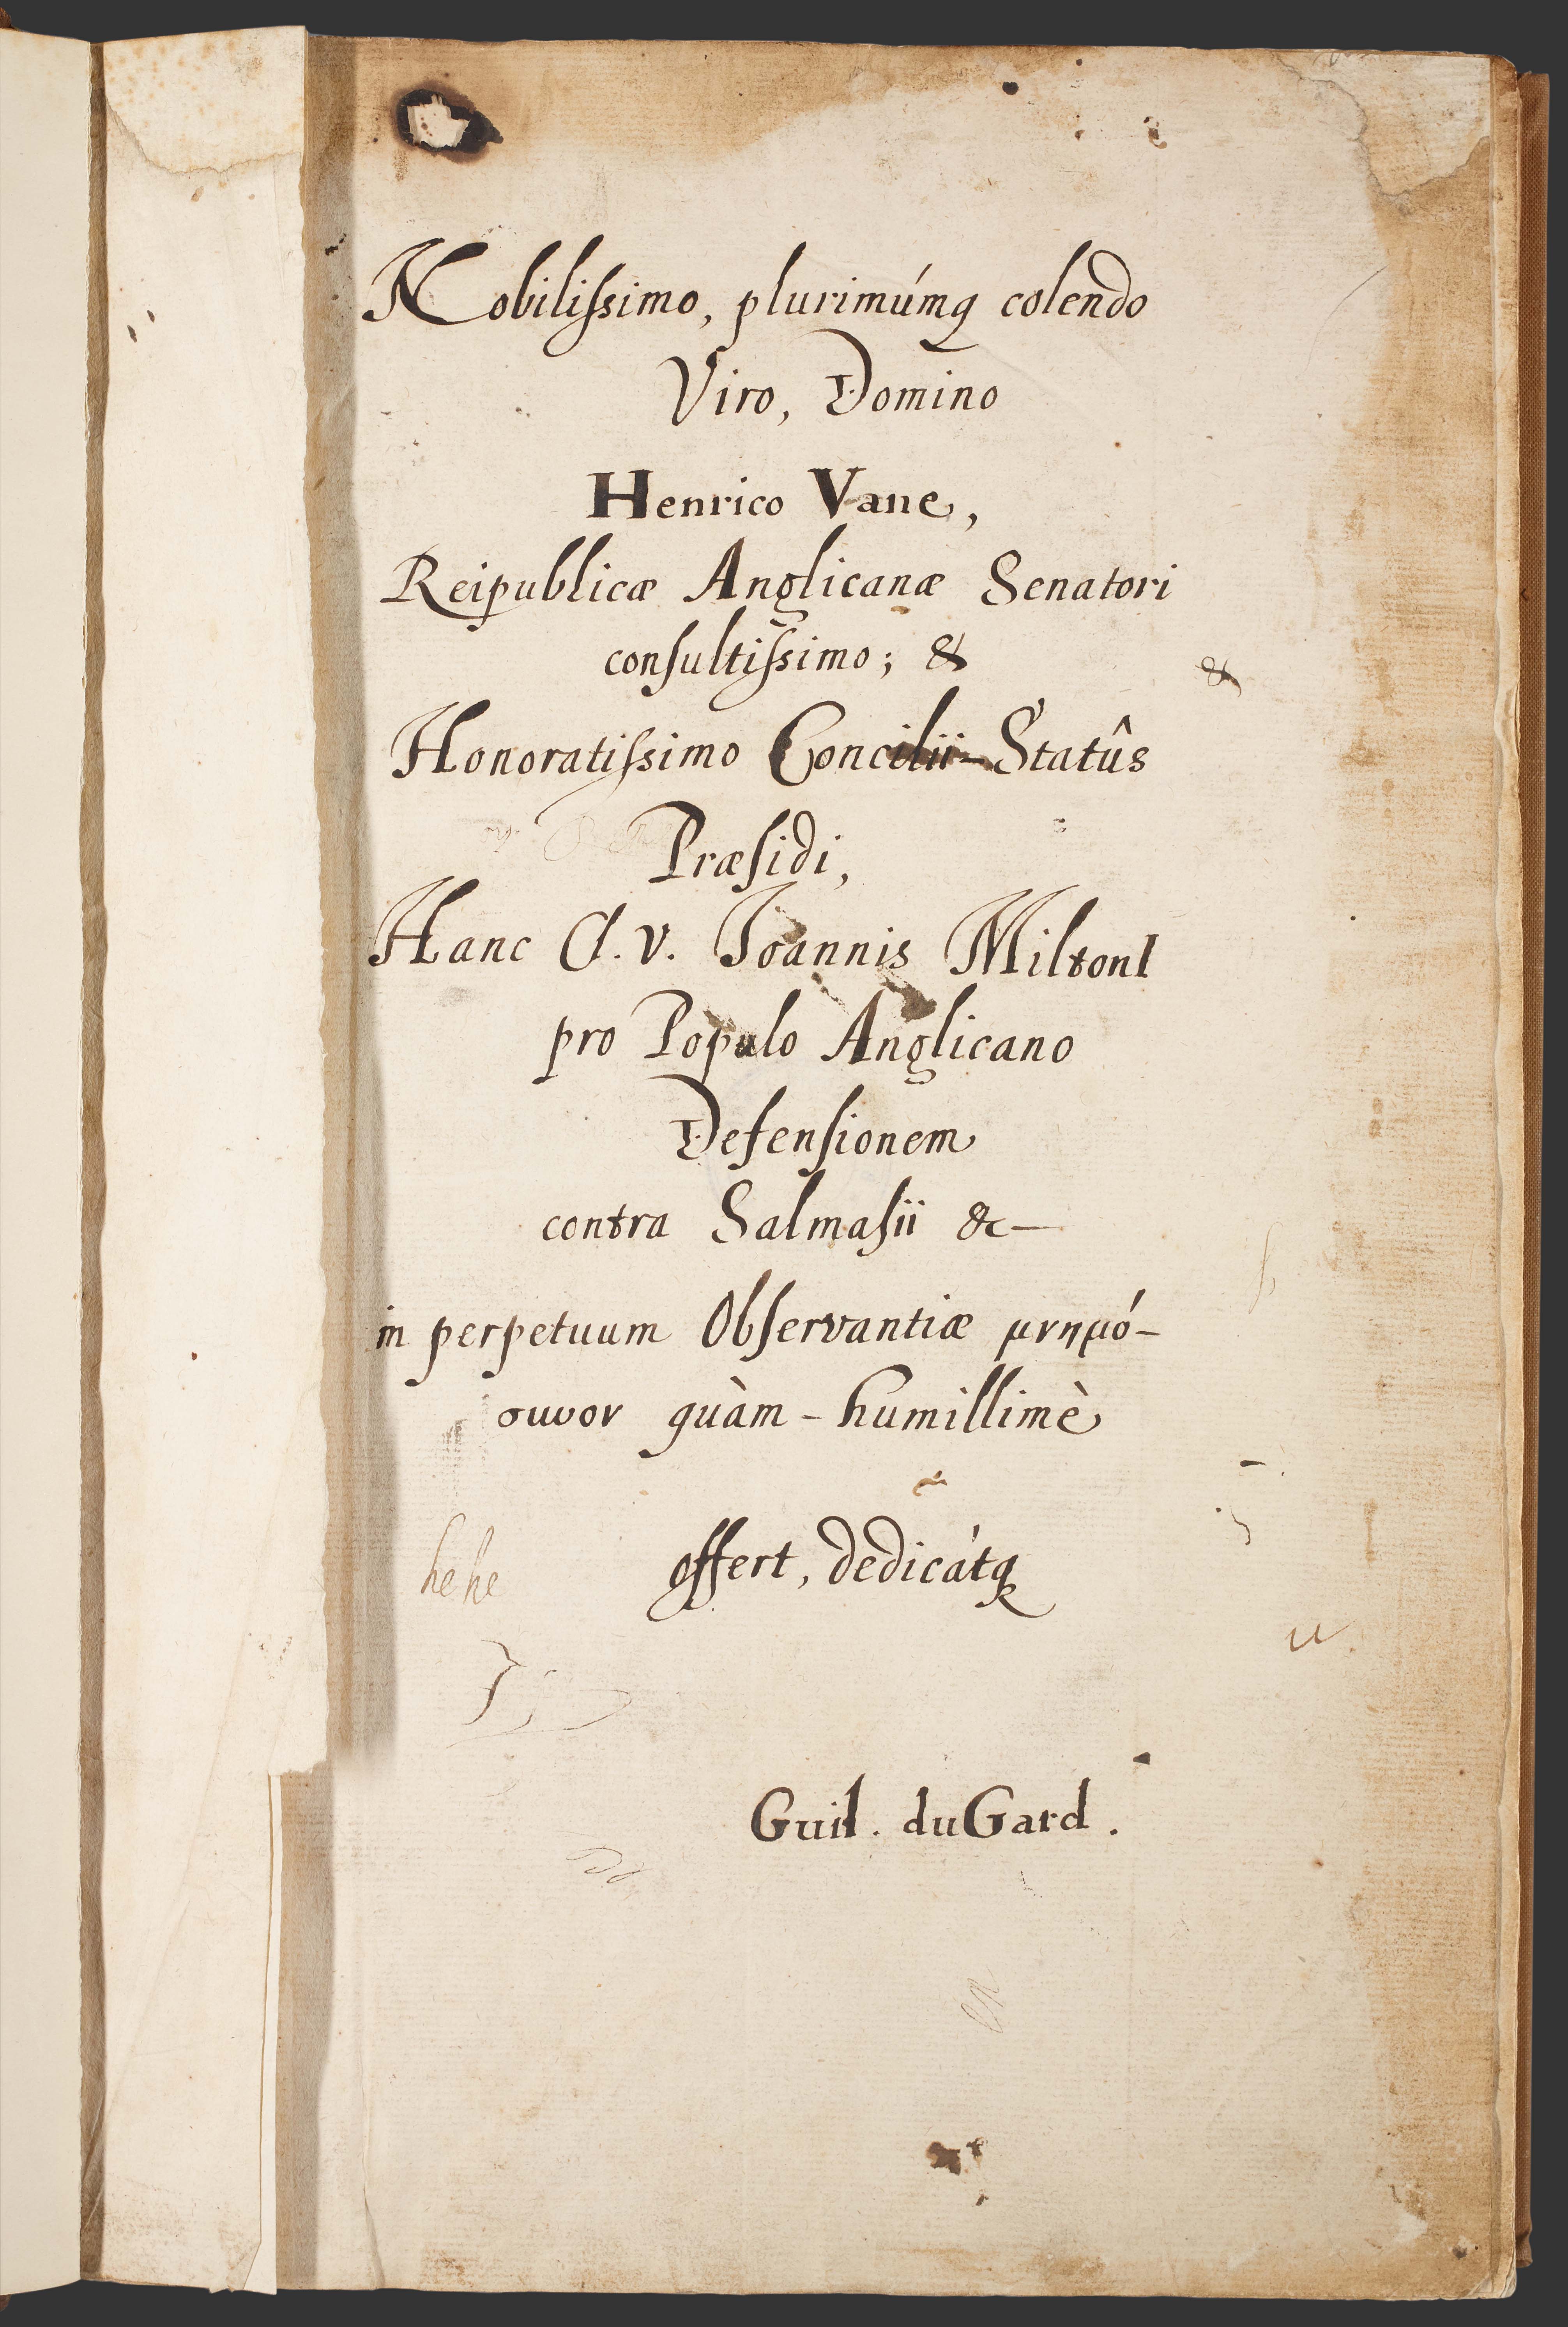 Nobiliſsimo, plurimúmq colendo
Viro, Domino
Henrico Vane,
Reipublicæ Anglicanæ Senatori
conſultiſsimo; &
&
Honoratiſsimo Concilii-Statûs
Præſidi,
Hanc Cl. v. Joannis MiltonI
pro Populo Anglicano
Defenſionem
contra Salmaſii &c—
in perpetuum Obſervantiæ μνημό-
συνον quàm-humillimè
hehe
offert, dedicátq
Guil. duGard.